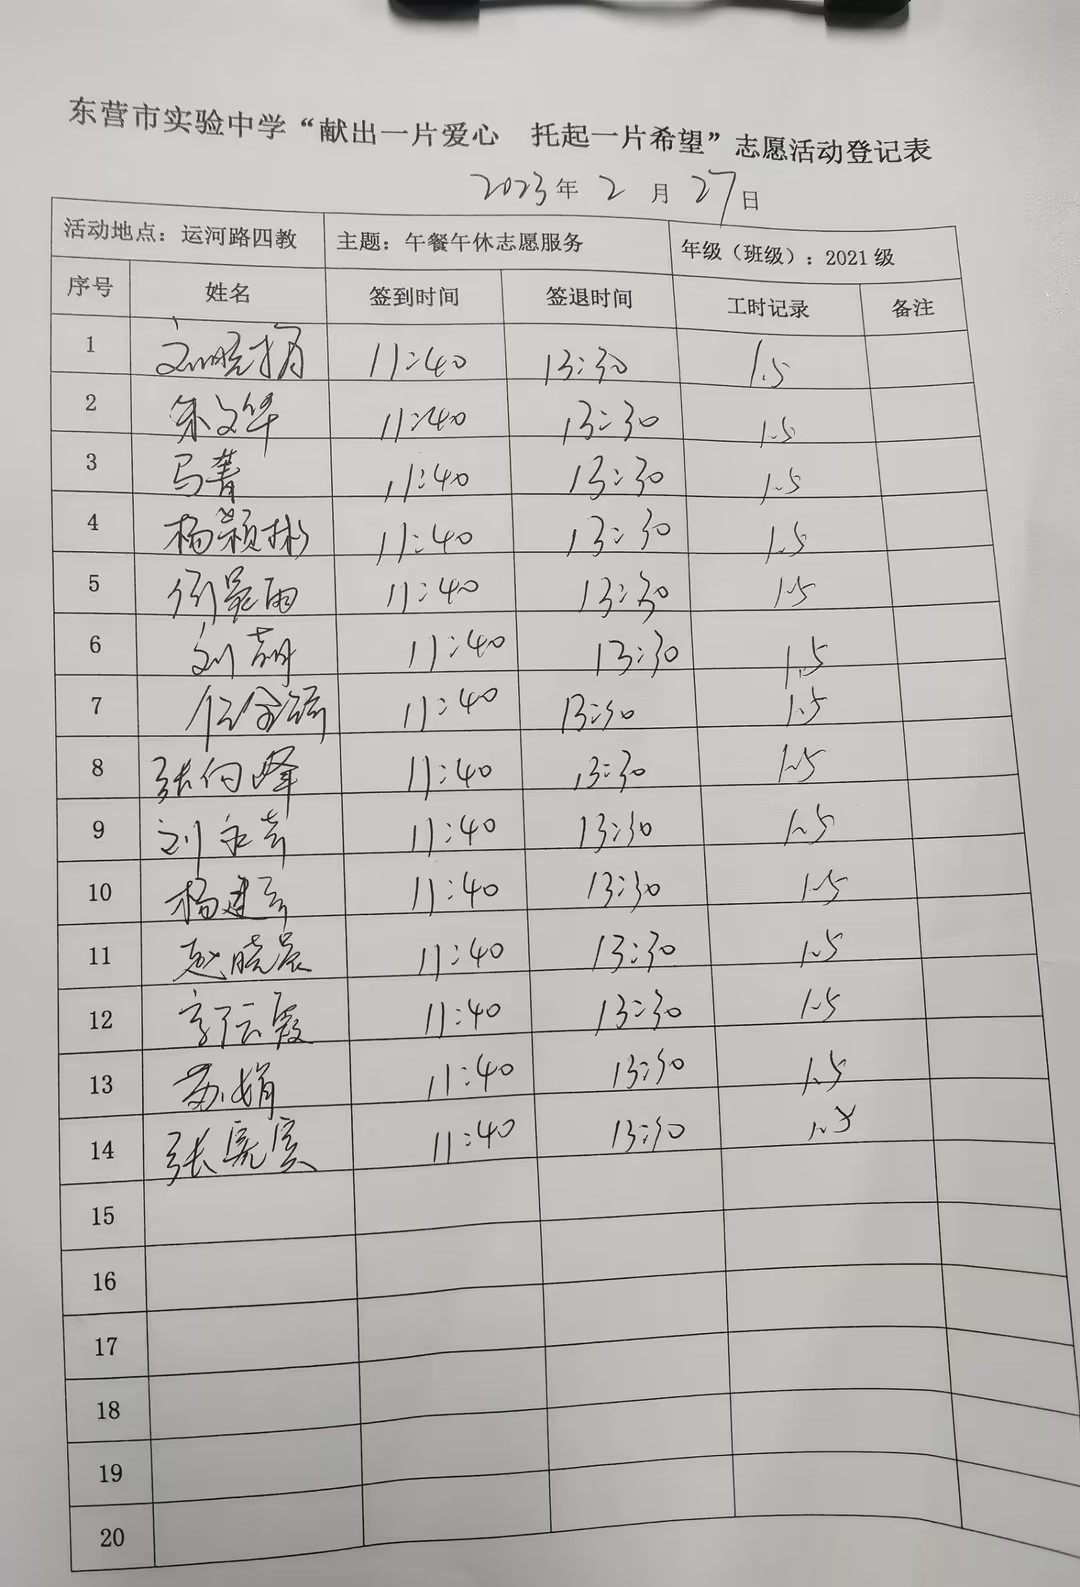 东营市实验中学“献出一片爱心 托起一片希望”志愿活动登记表
2023年2月27日
活动地点：运河路四教 主题：午餐午休志愿服务 年级（班级）：2021级
序号 姓名 签到时间 签退时间 工时记录 备注
1 11:40 13:30 1.5
2 朱文华 11:40 13:30 1.5
3 马菁 11:40 13:30 1.5
4 杨颖彬 11:40 13:30 1.5
5 11:40 13:30 1.5
6 刘 11:40 13:30 1.5
7 11:40 13:30 1.5
8 张向峰 11:40 13:30 1.5
9 刘 11:40 13:30 1.5
10 杨建云 11:40 13:30 1.5
11 赵晓晨 11:40 13:30 1.5
12 11:40 13:30 1.5
13 苏娟 11:40 13:30 1.5
14 张 11:40 13:30 1.5
15
16
17
18
19
20